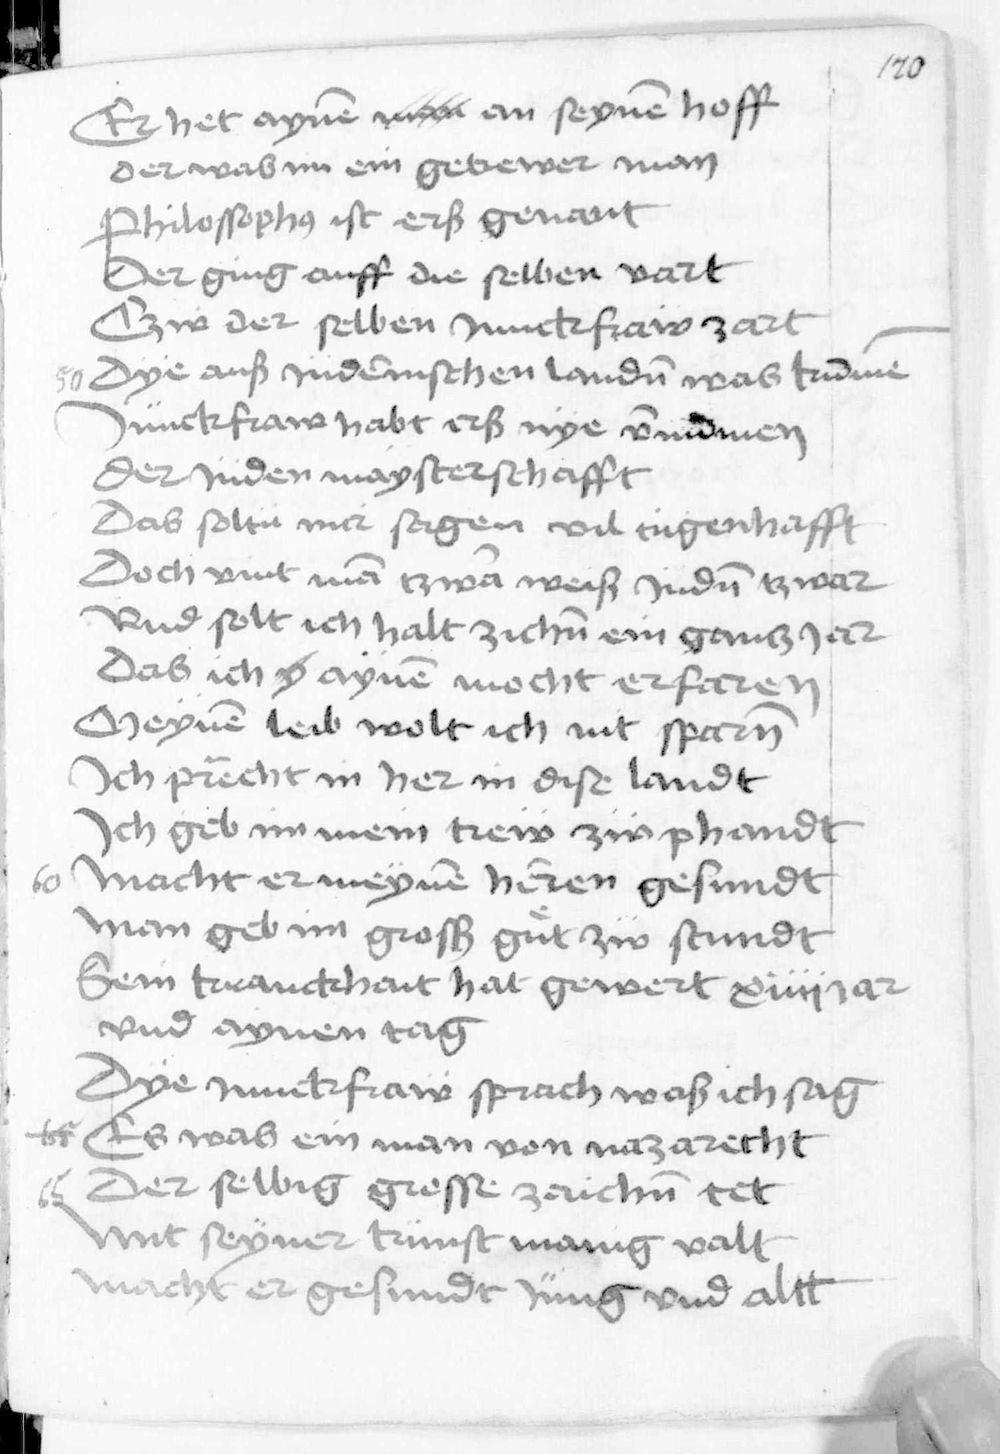 120
Er het aynē an seynē hoff
der was im ein getrewer man
Philossophꝰ ist erß genant
Der ging auff die selben vart
Czw der selben Junckfraw zart
50 Dÿe auß Judēnischen landn̄ was kūmē
Jünckfraw habt erß nÿe v̄nūmen
der Juden maÿsterschafft
Das soltu mir sagen vil tugenhafft
Doch vint mā tzwā weiß Judn̄ tzwar
Vnd solt ich halt zichn̄ ein gantz Jar
Das ich aÿnē mocht erfaren
Meynē leib wolt ich nit sparn̄
Ich precht in her in dise landt
Ich geb im mein trew zw phandt
60 Macht er meynē herren gesundt
Man geb im groß gut zw stundt
Sein kranckhait hat gewert xiiij Jar
vnd aynen tag
Dÿe Junckfraw sprach waß ich sag
65 Es was ein man von nazarecht
65 Der selbig grosse zaichn̄ tet
Mit seÿner kunst manig valt
Macht er gesundt Jüng vnd altt